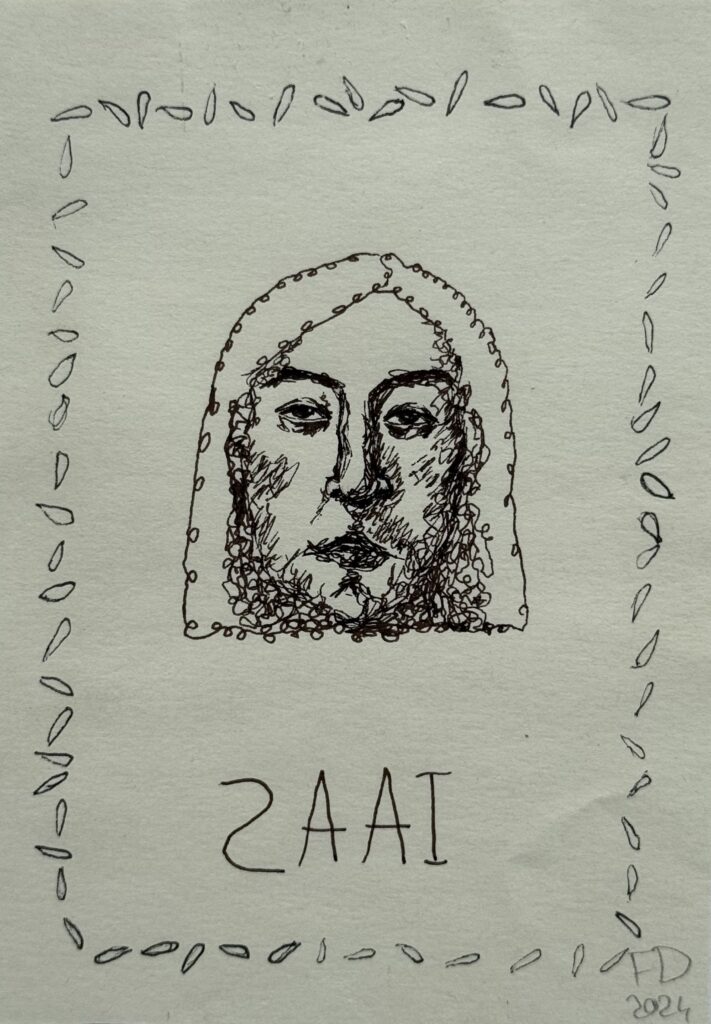 ZAAI
FD
2024